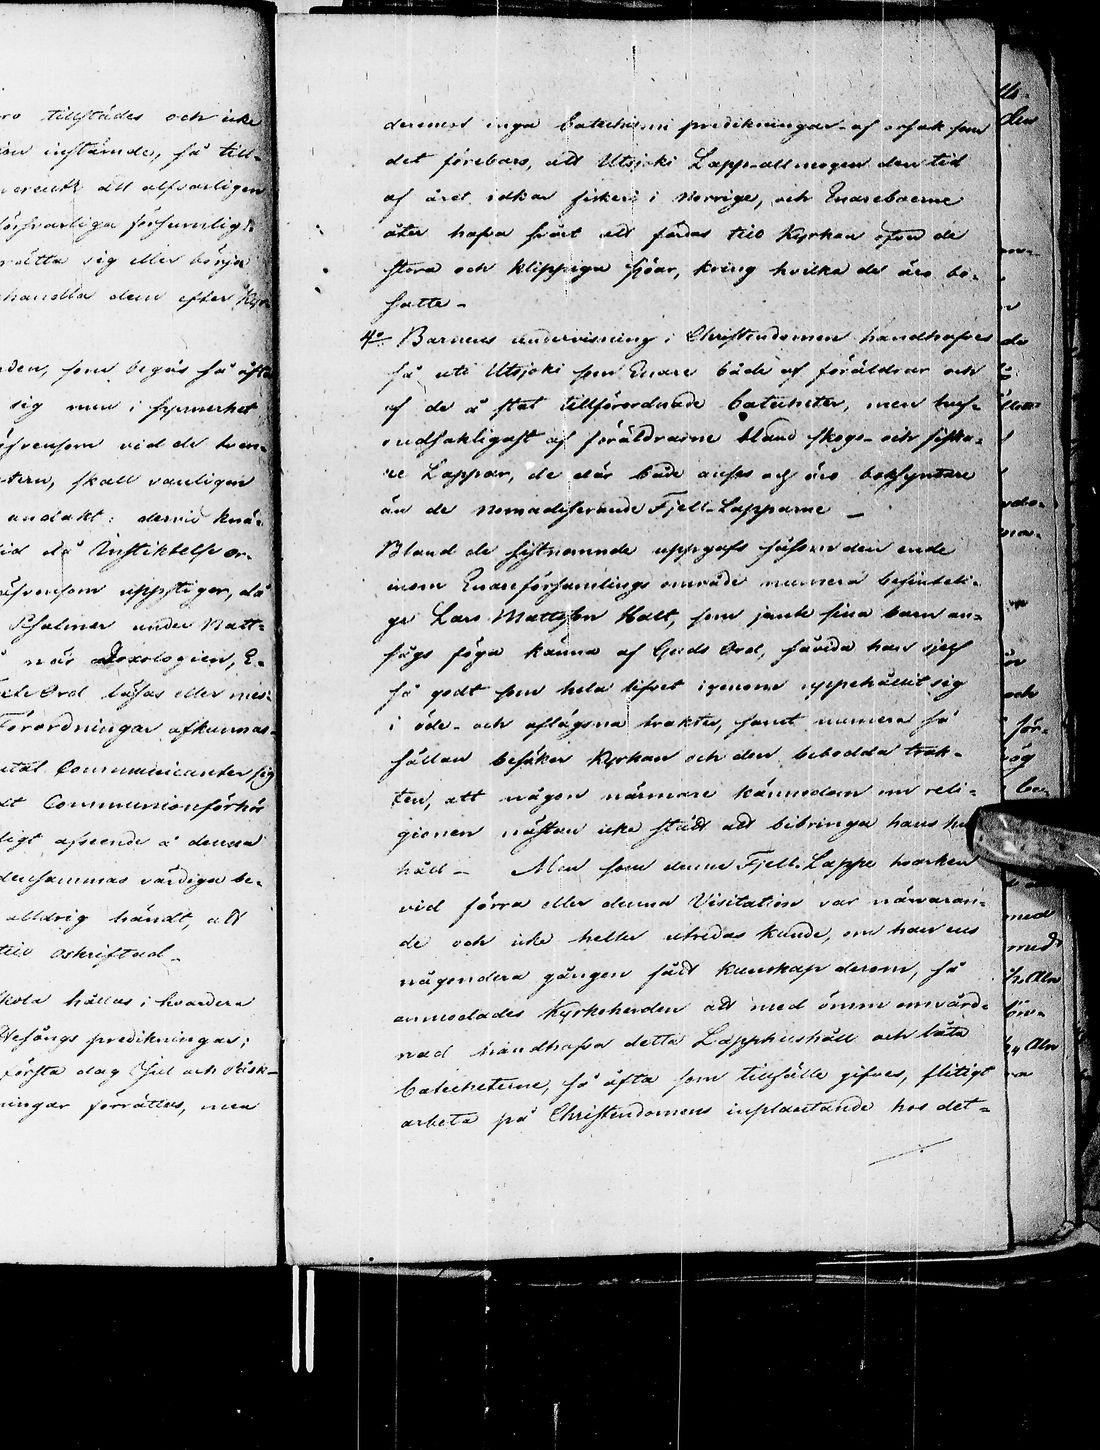 ro tillstädes och icke
instämde, så till-
att alfvarligen
försvarliga försumlig-
rätta sig eller börja
handla dem efter Kyr
den, som begås så ofta
sig men i synnerhet
äfvensom vid de tven-
stern, skall vanligen
andakt: dervid knä-
tid då Instiktelse or-
äfvensom uppstiger, då
Psalmer under Natt-
när Doxologien, E-
Ord läsas eller mes-
Förordningar afkunnas-
antal Communicanter sig
Communionförhör
ligt afseende å denna
densammas värdiga be-
aldrig händt, att
till oskriftad_
skola hållas i hvardera
Utefångs predikningar;
första dag Jul och Påsk-
ningar förrättas, men
deremot inga Catechismi predikningar af orsak som
det förebars, att Utsjoki Lapp-allmogen den tid
af året idkar fiskeri i Norrige, och Enareboerne
åter hafva svårt att färdas till Kyrkan öfver de
stora och klippiga sjöar, kring hvilka de äro bo-
satte_
4:o Barnens undervisning i Christendomen handhafves
så uti Utsjoki som Enare både af föräldrar och
af de å stat tillförordnade Catecheter, men huf-
vudsakligast af föräldrarne bland skogs- och fiska-
re Lappar, de der både anses och äro boksyntare
än de Nomadiserande Fjell-Lapparne _
Bland de sistnämnde uppgafs såsom den ende
inom Enare församlings område numera befintli-
ge Lars Mattsson Halt, som jemte sina barn an-
sågs föga känna af Guds Ord, såvida han sjelf
så godt som hela lifvet igenom uppehållit sig
i öde- och aflägsna trakter, samt numera så
sällan besöker Kyrkan och den bebodda trak-
ten, att någon närmare kännedom om reli-
gionen nästan icke stått att bibringa hans hus
håll _ Men som denne Fjell-Lappe hvarken
vid förra eller denna Visitation var närvaran-
de och icke heller utredas kunde, om han ens
någondera gången fått kunskap derom, så
anmodades Kyrkoherden att med ömm omvård-
nad handhafva detta Lapphushåll och låta
Catecheterne, så ofta som tillfälle gifves, flitigt
arbeta på Christendomens inplantande hos det-
för-
och
med
Aln
Aln